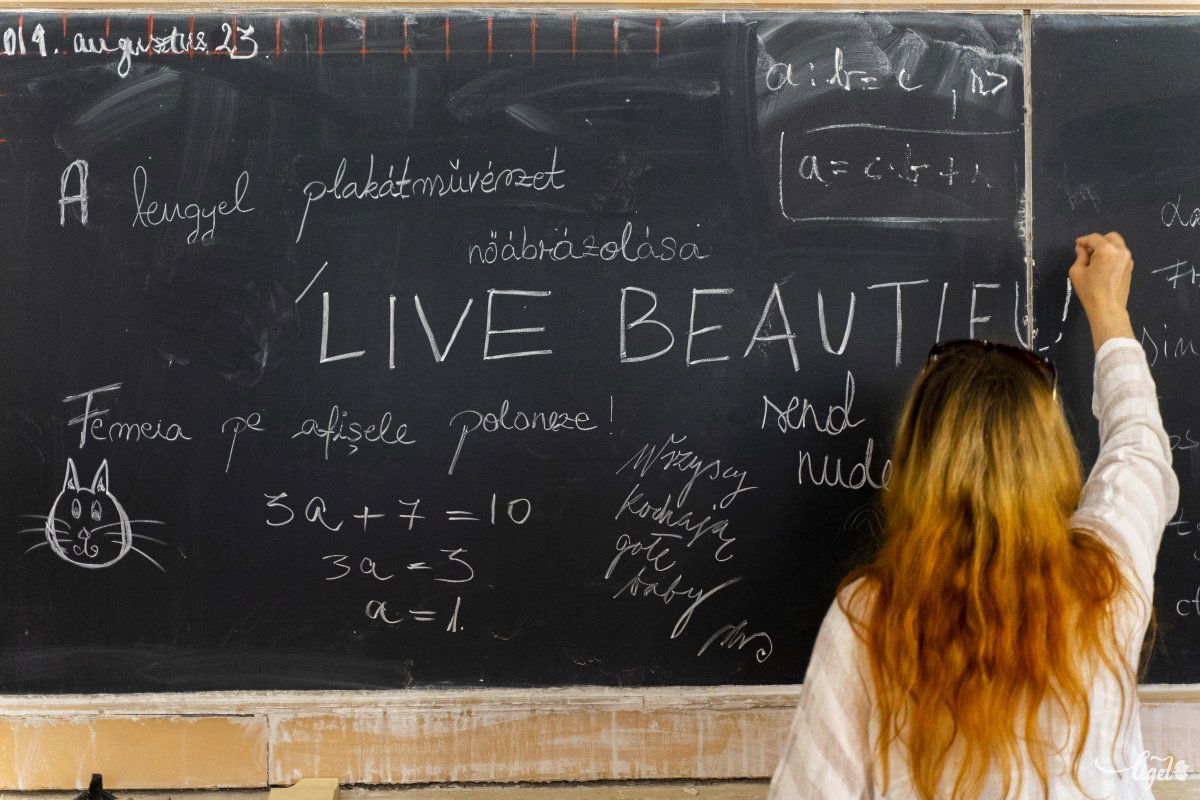 019. augusztus 23
a : b = c , r>
a = c · b + r
A lengyel plakátművészet
nőábrázolásá
LIVE BEAUTIFUL!
Femeia pe afișele poloneze!
send
nude
3a + 7 = 10
3a = 3
a = 1.
Wszyscy
kochają
gołe
baby
sin
liget